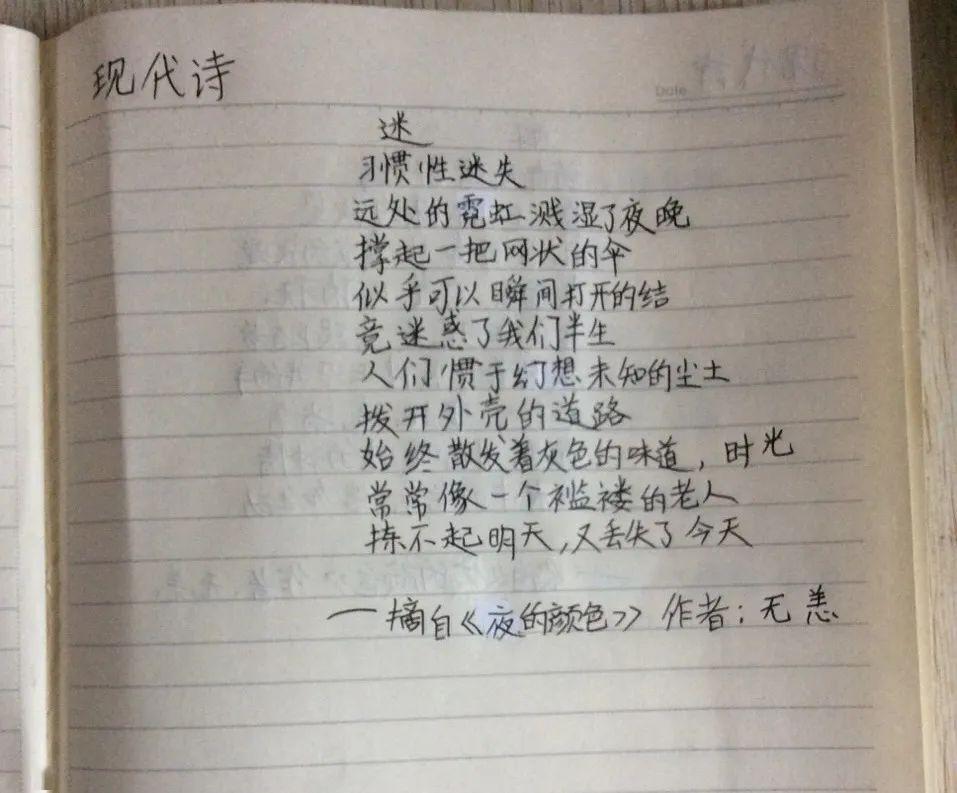 现代诗
Date
迷
习惯性迷失
远处的霓虹溅湿了夜晚
撑起一把网状的伞
似乎可以瞬间打开的结
竟迷惑了我们半生
人们惯于幻想未知的尘土
拨开外壳的道路
始终散发着灰色的味道，时光
常常像一个褴褛的老人
拣不起明天，又丢失了今天
——摘自《夜的颜色》 作者：无恙